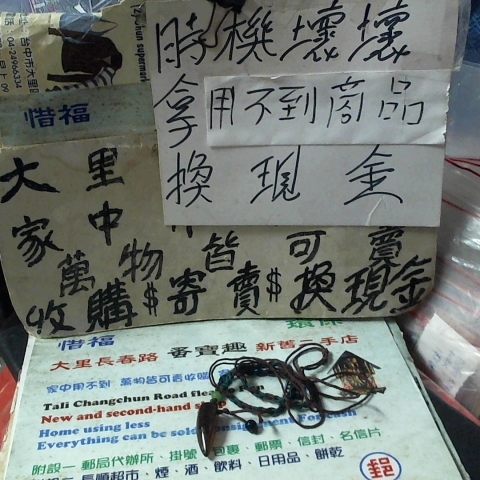 時機壞壞
拿用不到商品
換現金
惜福
大里
家中
萬物皆可賣
收購$寄賣$換現金
惜福
大里長春路 番寶趣 新舊二手店
家中用不到 萬物皆可寄收購
Tali Changchun Road flea
New and second-hand
Home using less
Everything can be sold
附設一 郵局代辦所、掛號、包裹、郵票、信封、名信片
長順超市、煙、酒、飲料、日用品、餅乾
郵